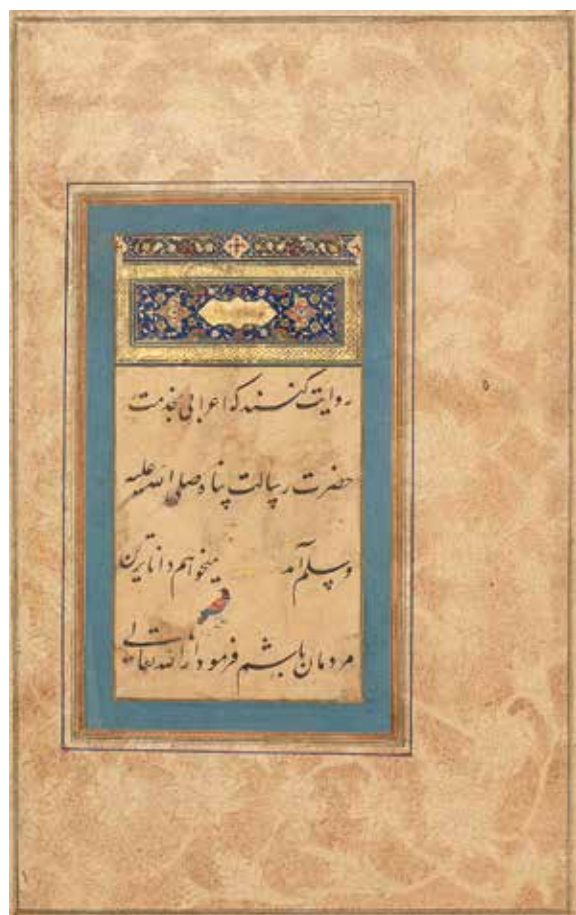 روایت کنند که اعرابی بخدمت
حضرت رسالت پناه صلی الله علیه
وسلم آمد میخواهم داناترین
مردمان باشم فرمود از الله تعالی